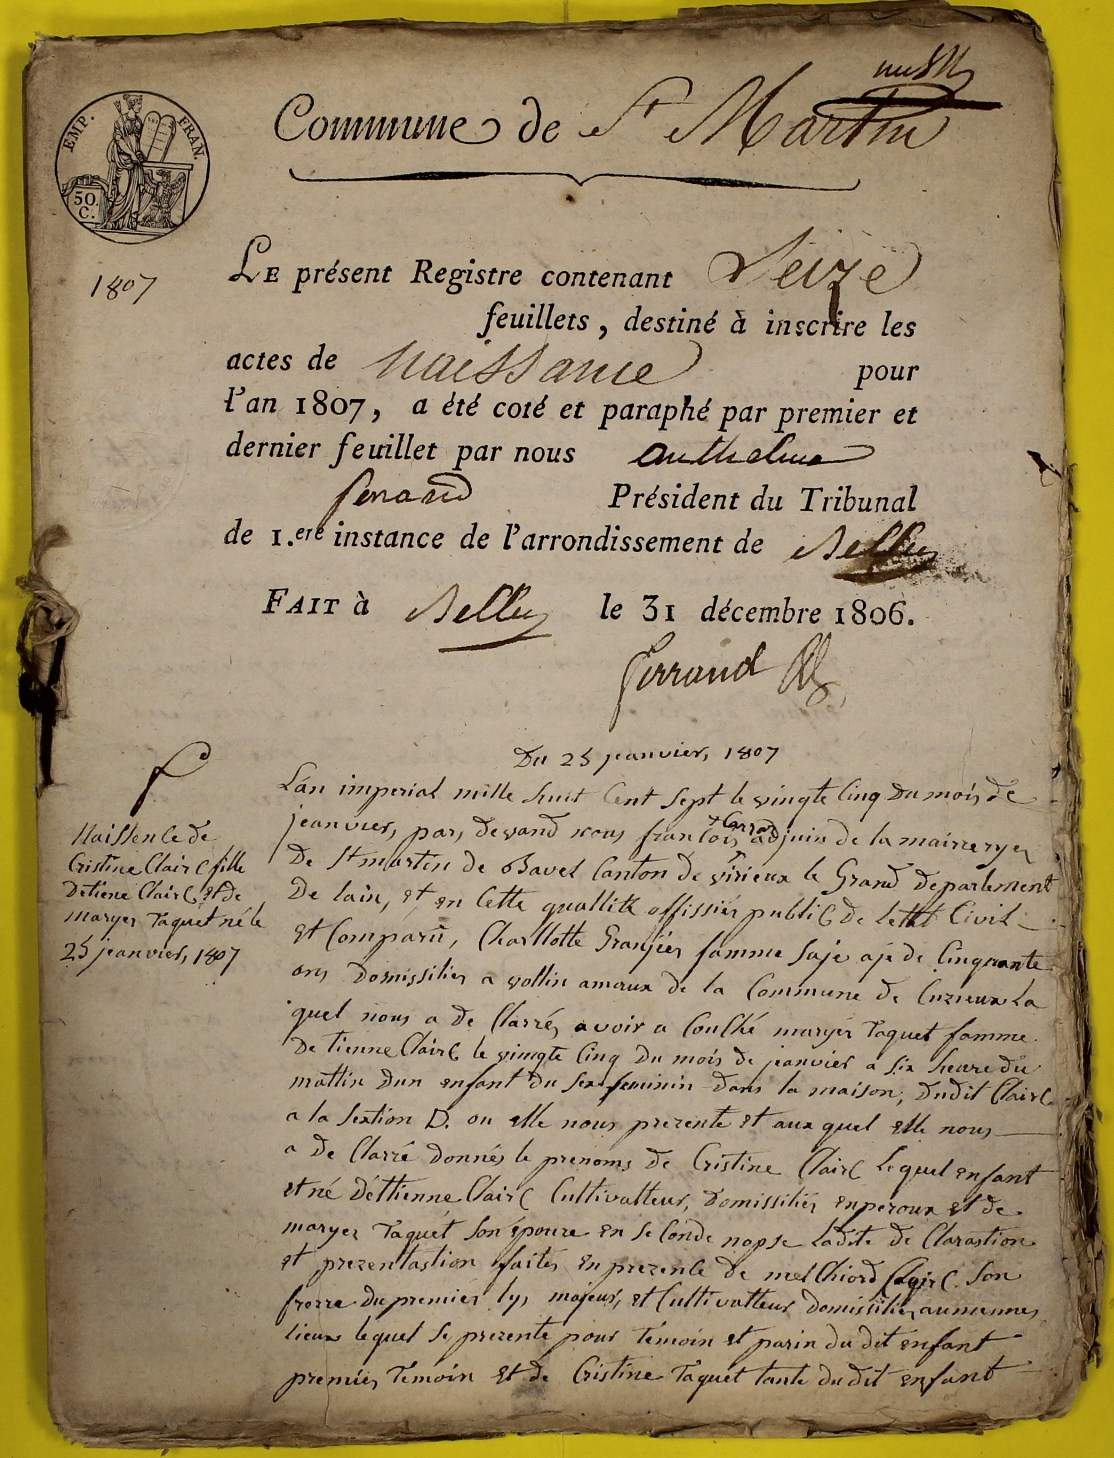 EMP. FRAN.
50. C.
Commune de St Martin
1807
LE présent Registre contenant Seize
feuillets, destiné à inscrire les
actes de naissance pour
l'an 1807, a été coté et paraphé par premier et
dernier feuillet par nous anthelme
ferrand Président du Tribunal
de 1.ere instance de l'arrondissement de Belley
FAIT à Belley le 31 décembre 1806.
ferrand
Du 25 jeanvier, 1807
Naissence de
Cristine Clairc fille
Détiene Clairc et de
maryer Taquet né le
25 jeanvier, 1807
Lan imperial mille huit Cent Sept le vingte Cinq Du mois de
jeanvier, par, devand nous francois Carrad adjuin de la mairerye
De St martin de Bavel Canton de virieux le Grand departement
De lain, et en Cette quallité offissier public de lettat Civil
et Comparu, Charllotte Granjier famme Saje aje de Cinquante
ans domissilier a vollin amaux de la Commune de Cuzieux La
quel nous a de Clarré, avoir a Couché maryer Taquet famme
De tienne Clairc le vingte Cinq Du mois de jeanvier a Six heure du
mattin Dun enfant du Sex feminin dans la maison, Dudit Clairc
a la Sextion D. ou elle nous prezente et aux quel elle nous
a de Clarré donnés le prenoms de Cristine Clairc Lequel enfant
et né Déttienne Clairc Cultivatteur, Domissilier enperoux et de
maryer Taquet Son épouze en Se Conde nopse Ladite de Clarastion
et prezentastion faites en prezence de melChiord Clairc Son
frerre du premier ly, majeur, et Cultivatteur Domissilier aumemes
lieux lequel Se prezente pour Témoin et parin du dit enfant
premier Témoin et de Cristine Taquet tante du dit enfant